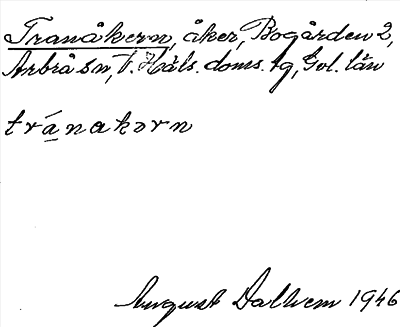 Tranåkern, åker, Bogården 2,
Arbrå sn, V. Häls. doms. tg, Gvl. län
tránakərn
August Dalhem 1946